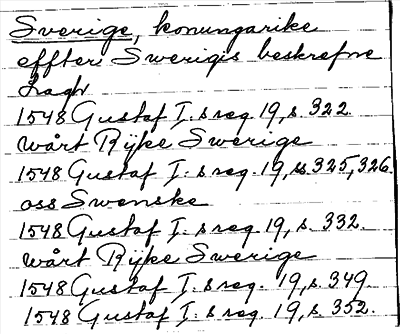 Sverige, konungarike
effter Swerigis beskrefne
Lagh
1548 Gustaf I:s reg. 19, s. 322.
wårt Rijke Swerige
1548 Gustaf I:s reg. 19, ss. 325, 326.
oss Swenske
1548 Gustaf I:s reg. 19, s. 332.
wårt Rijke Swerige
1548 Gustaf I:s reg. 19, s. 349.
1548 Gustaf I:s reg. 19, s. 352.